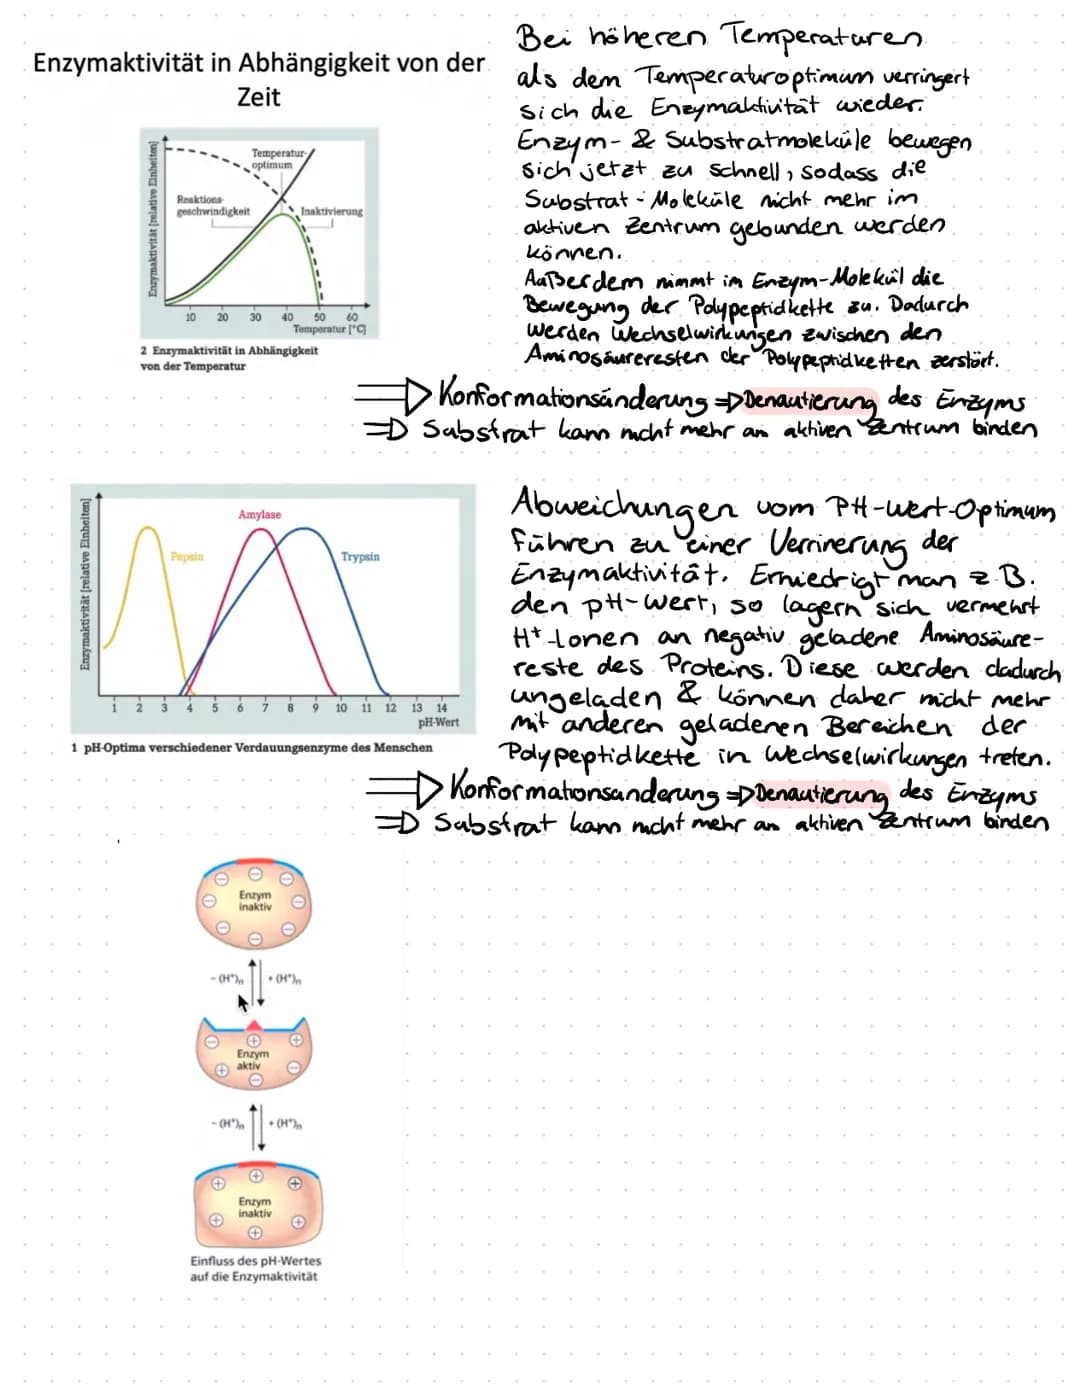 Enzymaktivität in Abhängigkeit von der
Zeit
Enzymaktivität [relative Einheiten]
Temperatur-
optimum
Reaktions-
geschwindigkeit
Inaktivierung
10 20 30 40 50 60
Temperatur [°C]
2 Enzymaktivität in Abhängigkeit
von der Temperatur
Bei höheren Temperaturen
als dem Temperaturoptimum verringert
sich die Enzymaktivität wieder.
Enzym- & Substratmoleküle bewegen
sich jetzt zu schnell, sodass die
Substrat-Moleküle nicht mehr im
aktiven Zentrum gebunden werden
können.
Außerdem nimmt im Enzym-Molekül die
Bewegung der Polypeptidkette zu. Dadurch
werden Wechselwirkungen zwischen den
Aminosäureresten der Polypeptidketten zerstört.
⇒ Konformationsänderung ⇒ Denautierung des Enzyms
⇒ Substrat kann nicht mehr am aktiven Zentrum binden
Enzymaktivität [relative Einheiten]
Pepsin
Amylase
Trypsin
1 2 3 4 5 6 7 8 9 10 11 12 13 14
pH-Wert
1 pH-Optima verschiedener Verdauungsenzyme des Menschen
Abweichungen vom PH-Wert-Optimum
führen zu einer Verrinerung der
Enzymaktivität. Erniedrigt man z.B.
den pH-Wert, so lagern sich vermehrt
H⁺-Ionen an negativ geladene Aminosäure-
reste des Proteins. Diese werden dadurch
ungeladen & können daher nicht mehr
mit anderen geladenen Bereichen der
Polypeptidkette in Wechselwirkungen treten.
⇒ Konformationsänderung ⇒ Denautierung des Enzyms
⇒ Substrat kann nicht mehr am aktiven Zentrum binden
Enzym
inaktiv
- (H⁺)n + (H⁺)n
Enzym
aktiv
- (H⁺)n + (H⁺)n
Enzym
inaktiv
Einfluss des pH-Wertes
auf die Enzymaktivität